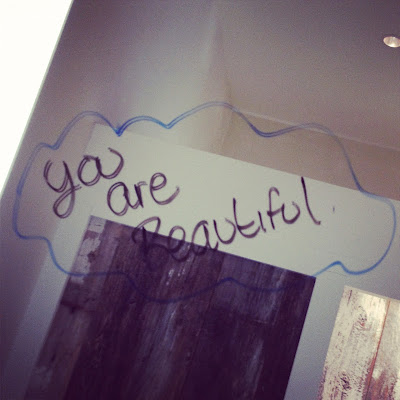 you
are
Beautiful.